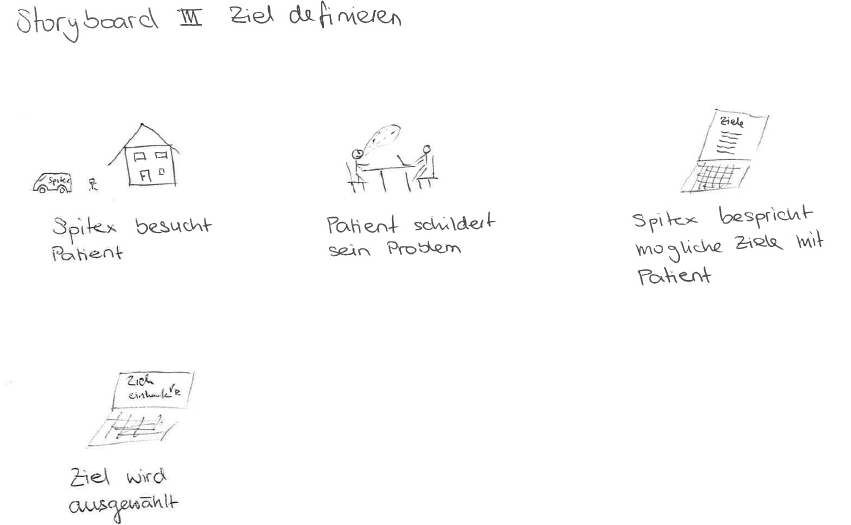 Storyboard III Ziel definieren
Spitex
Spitex besucht
Patient
Patient schildert
sein Problem
Ziele
Spitex bespricht
mögliche Ziele mit
Patient
Ziel
Ziel wird
ausgewählt